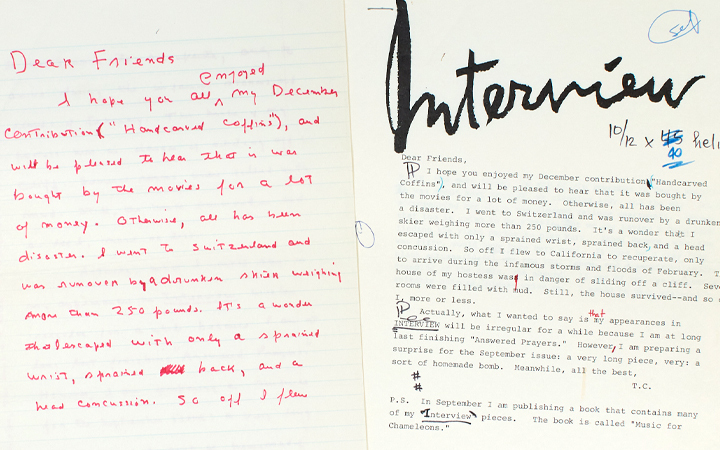 Dear Friends
enjoyed
I hope you all ^ my December
contribution ("Handcarved Coffins"), and
will be pleased to hear that it was
bought by the movies for a lot
of money. Otherwise, all has been
disaster. I went to Switzerland and
was runover by a drunken skier weighing
more than 250 pounds. It's a wonder
that I escaped with only a sprained
wrist, sprained back, and a
head concussion. So off I flew
set
Interview
10/12 x 40 helv
Dear Friends,
I hope you enjoyed my December contribution ("Handcarved
Coffins"), and will be pleased to hear that it was bought by
the movies for a lot of money. Otherwise, all has been
a disaster. I went to Switzerland and was runover by a drunken
skier weighing more than 250 pounds. It's a wonder that I
escaped with only a sprained wrist, sprained back, and a head
concussion. So off I flew to California to recuperate, only
to arrive during the infamous storms and floods of February. T
house of my hostess was in danger of sliding off a cliff. Seve
rooms were filled with mud. Still, the house survived--and so
I, more or less.
that
Actually, what I wanted to say is my appearances in
INTERVIEW will be irregular for a while because I am at long
last finishing "Answered Prayers." However, I am preparing a
surprise for the September issue: a very long piece, very: a
sort of homemade bomb. Meanwhile, all the best,
#
T.C.
#
P.S. In September I am publishing a book that contains many
of my "Interview" pieces. The book is called "Music for
Chameleons."